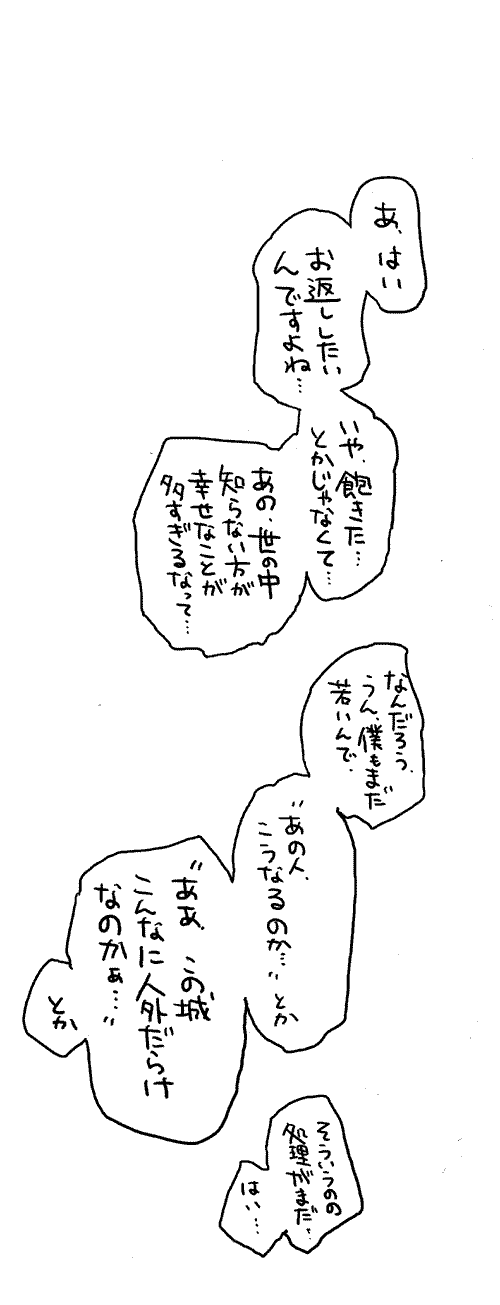 あ、はい
お返ししたい
んですよね…
いや、飽きた…
とかじゃなくて…
あの、世の中
知らない方が
幸せなことが
多すぎるなって…
なんだろう、
うん、僕もまだ
若いんで、
"あの人、
こうなるのか…"とか
"ああ、この城
こんなに人外だらけ
なのかぁ…"
とか
そういうのの
処理がまだ…
はい…